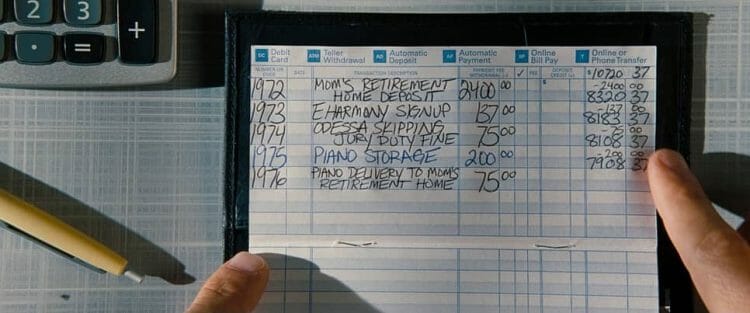 2 3 +
= 
DC Debit Card ATM Teller Withdrawal AD Automatic Deposit AP Automatic Payment BP Online Bill Pay T Online or Phone Transfer
DATE TRANSACTION DESCRIPTION PAYMENT, FEE WITHDRAWAL (-) ✓ FEE DEPOSIT CREDIT (+) $10720 37
1972 MOM'S RETIREMENT 2400 00 -2400 00
HOME DEPOSIT 8320 37
1973 EHARMONY SIGNUP 137 00 -137 00
8183 37
1974 ODESSA SKIPPING 75 00 -75 00
JURY DUTY FINE 8108 37
1975 PIANO STORAGE 200 00 -200 00
7908 37
1976 PIANO DELIVERY TO MOM'S 75 00
RETIREMENT HOME